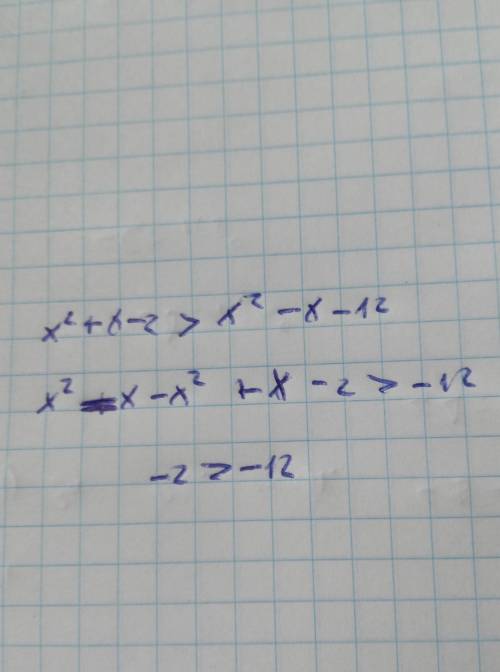 x² + x - 2 > x² - x - 12
x² - x - x² + x - 2 > - 12
- 2 > - 12